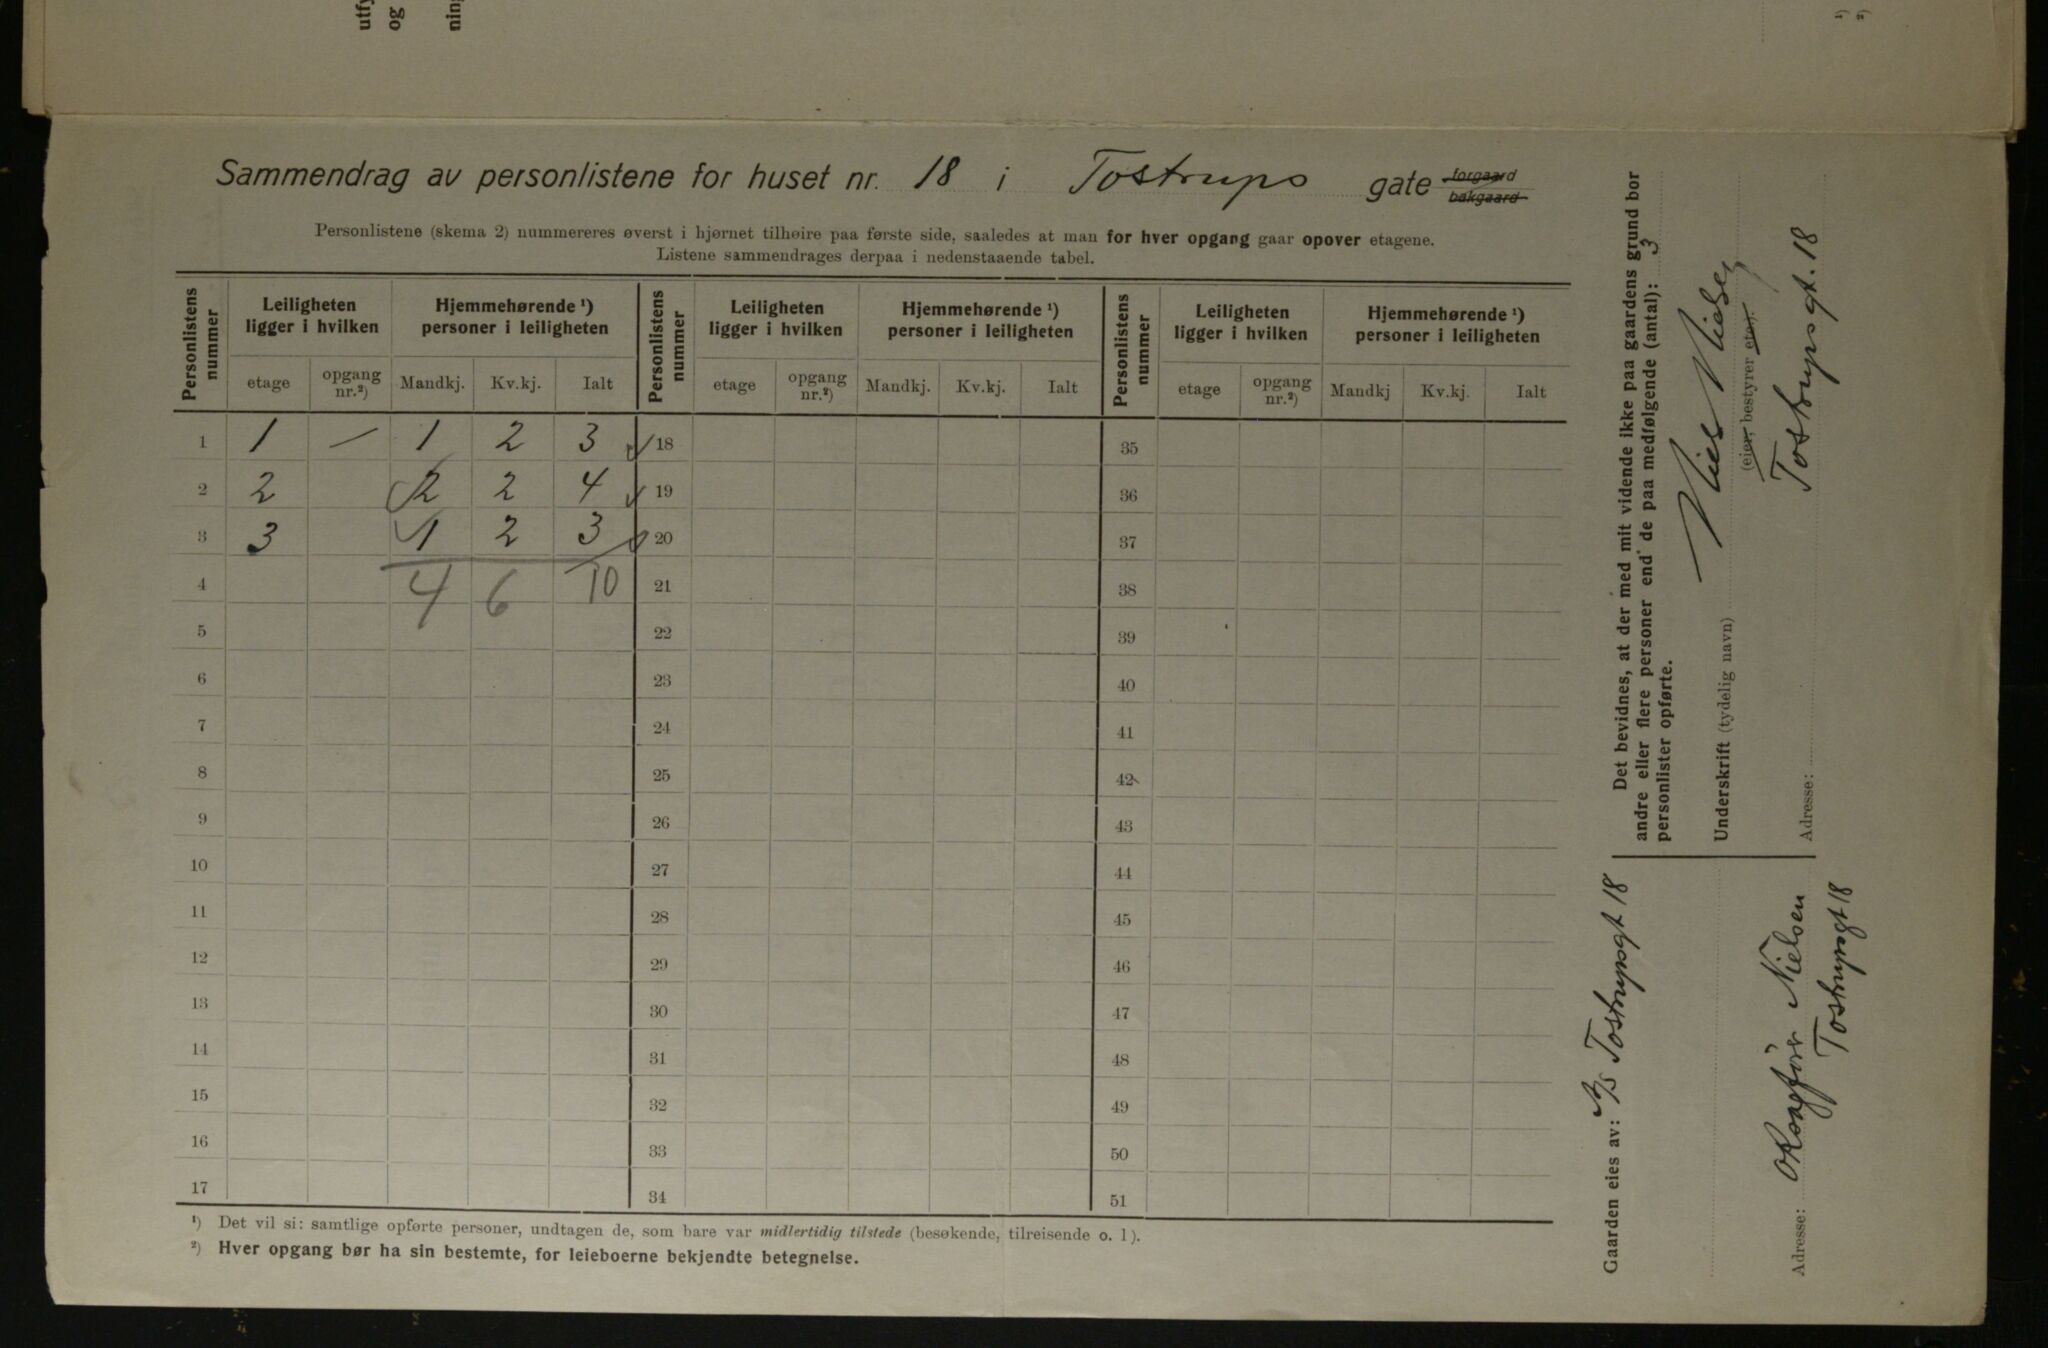 utfy
og
ning
¹)
²)
Sammendrag av personlistene for huset nr. 18 i Tostrups gate forgaard bakgaard
Personlistene (skema 2) nummereres øverst i hjørnet tilhøire paa første side, saaledes at man for hver opgang gaar opover etagene.
Listene sammendrages derpaa i nedenstaaende tabel.
Personlistens nummer
Leiligheten ligger i hvilken
Hjemmehørende ¹) personer i leiligheten
Personlistens nummer
Leiligheten ligger i hvilken
Hjemmehørende ¹) personer i leiligheten
Personlistens nummer
Leiligheten ligger i hvilken
Hjemmehørende ¹) personer i leiligheten
etage opgang nr.²) Mandkj. Kv.kj. Ialt etage opgang nr.²) Mandkj. Kv.kj. Ialt etage opgang nr.²) Mandkj Kv.kj. Ialt
1 1 — 1 2 3 18 35
2 2 2 2 4 19 36
3 3 1 2 3 20 37
4 4 6 10 21 38
5 22 39
6 23 40
7 24 41
8 25 42
9 26 43
10 27 44
11 28 45
12 29 46
13 30 47
14 31 48
15 32 49
16 33 50
17 34 51
¹) Det vil si: samtlige opførte personer, undtagen de, som bare var midlertidig tilstede (besøkende, tilreisende o. l).
²) Hver opgang bør ha sin bestemte, for leieboerne bekjendte betegnelse.
Det bevidnes, at der med mit vidende ikke paa gaardens grund bor
andre eller flere personer end de paa medfølgende (antal): 3
personlister opførte.
Niels Nielsen
Underskrift (tydelig navn)
(eier, bestyrer etc.).
Tostrupsgt. 18
Adresse:
Gaarden eies av: A/S Tostrupsgt 18
Adresse: Nielsen
Tostrupsgt 18